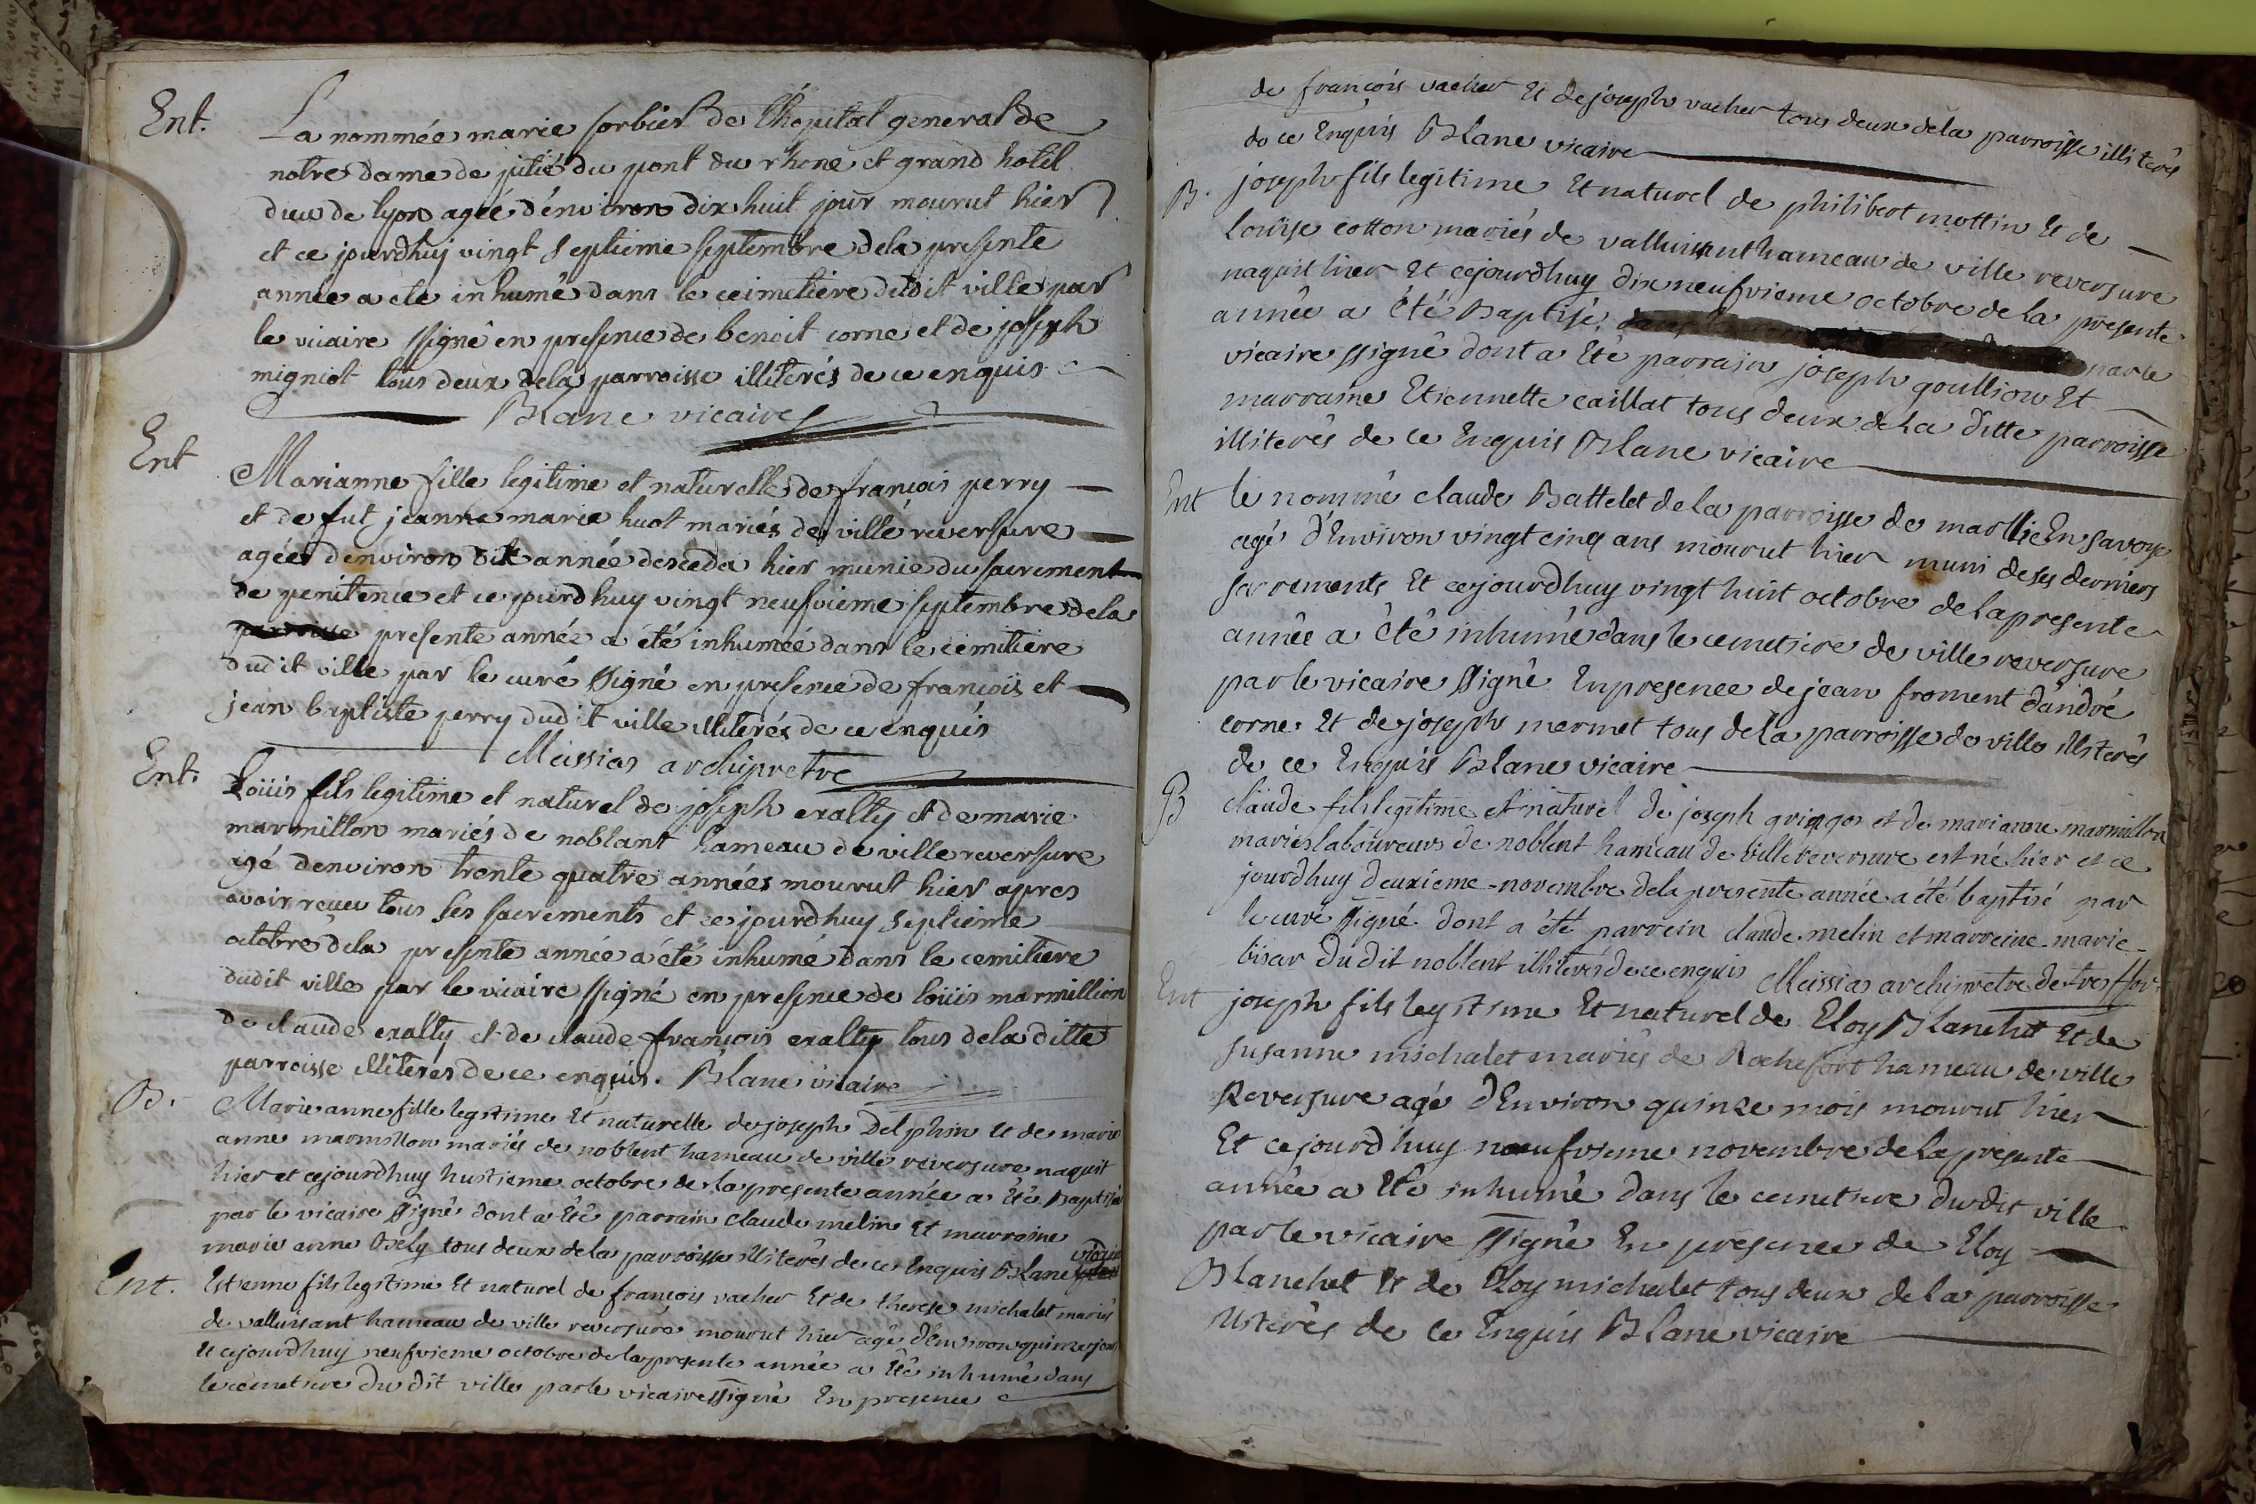 Ent.
La nommée marie sorbier de l'hopital general de
notre dame de pitié du pont du rhone et grand hotel
dieu de lyon agée d'environ dix huit jour mourut hier
et ce jourdhuy vingt septieme septembre dela presente
année a eté inhumé dans le ceimetiere dudit ville par
le vicaire ssigné en presence de benoit corne et de joseph
migniot tous deux dela parroisse illiterés de ce enquis
Blanc vicaire
Ent
Marianne fille legitime et naturelle de françois perry
et de fut jeanne marie huot mariés de ville reversure
agée d'environ dix année deceda hier munie du sacrement
de penitence et ce jourdhuy vingt neufvieme septembre dela
parroisse presente année a été inhumée dans le cemitiere
dudit ville par le curé ssigné en presence de françois et
jean baptiste perry dudit ville illiterés de ce enquis
Meissias archipretre
Ent.
Loüis fils legitime et naturel de joseph eralty et de marie
marmillon mariés de noblant hameau de ville reversure
agé denviron trente quatre années mourut hier apres
avoir receu tous ses sacrements et ce jourdhuy septieme
octobre dela presente année a été inhumé dans le cemitiere
dudit ville par le vicaire ssigné en presence de loüis marmillion
de claude eralty et de claude françois eralty tous dela ditte
parroisse illiterés de ce enquis. Blanc vicaire
B.
Marie anne fille legitime Et naturelle de joseph Delphin Et de marie
anne marmillon mariés de noblent hameau de ville reversure naquit
hier et cejourdhuy huitieme octobre de la presente année a Eté Baptisée
par le vicaire ssigné dont a Eté parrain claude melin Et marraine
marie anne Bely tous deux de la parroisse illiterés de ce Enquis Blanc vicaire
Ent.
Estienne fils legitime Et naturel de françois vacher Et de therese michalet mariés
de valluisant hameau de ville reversure mourut hier agé d'Environ quinze jours
Et cejourdhuy neufvieme octobre de la presente année a Eté inhumé dans
le cemetiere du dit ville par le vicaire ssigné En presence
de françois vacher Et de joseph vacher tous deux dela parroisse illiterés
de ce Enquis Blanc vicaire
B.
joseph fils legitime Et naturel de philibert mottin Et de
Louïse cotton mariés de valluisant hameau de ville reversure
naquit hier Et cejourdhuy dix neufvieme octobre de la presente
année a Eté Baptisé par le
vicaire ssigné dont a Eté parrain joseph goullion Et
marraine Etiennette caillat tous deux de la ditte parroisse
illiterés de ce Enquis Blanc vicaire
Ent
le nommé claude Battelet de la parroisse de marllie En savoye
agé d'Environ vingt cinq ans mourut hier muni de ses derniers
sacrements Et cejourdhuy vingt huit octobre de la presente
année a Eté inhumé dans le cemetiere de ville reversure
par le vicaire ssigné En presence de jean froment d'andré
corne Et de joseph mermet tous dela parroisse de ville illiterés
de ce Enquis Blanc vicaire
B
claude fils legitime et naturel de joseph gringos et de marianne marmillon
mariés laboureurs de noblent hameau de ville reversure est né hier et ce
jourdhuy deuxieme novembre dela presente année a été baptisé par
le curé ssigné dont a été parrein claude melin et marreine marie
bisar du dit noblent illiterés de ce enquis Meissias archipretre de tresffor.
Ent
joseph fils legitime Et naturel de Eloy Blanchet Et de
susanne michalet mariés de Rochefort hameau de ville
Reversure agé d'Environ quinze mois mourut hier
Et cejourdhuy neufvieme novembre de la presente
année a Eté inhumé dans le cemetiere dudit ville
par le vicaire ssigné En presence de Eloy
Blanchet Et de Eloy michalet tous deux de la parroisse
illiterés de ce Enquis Blanc vicaire